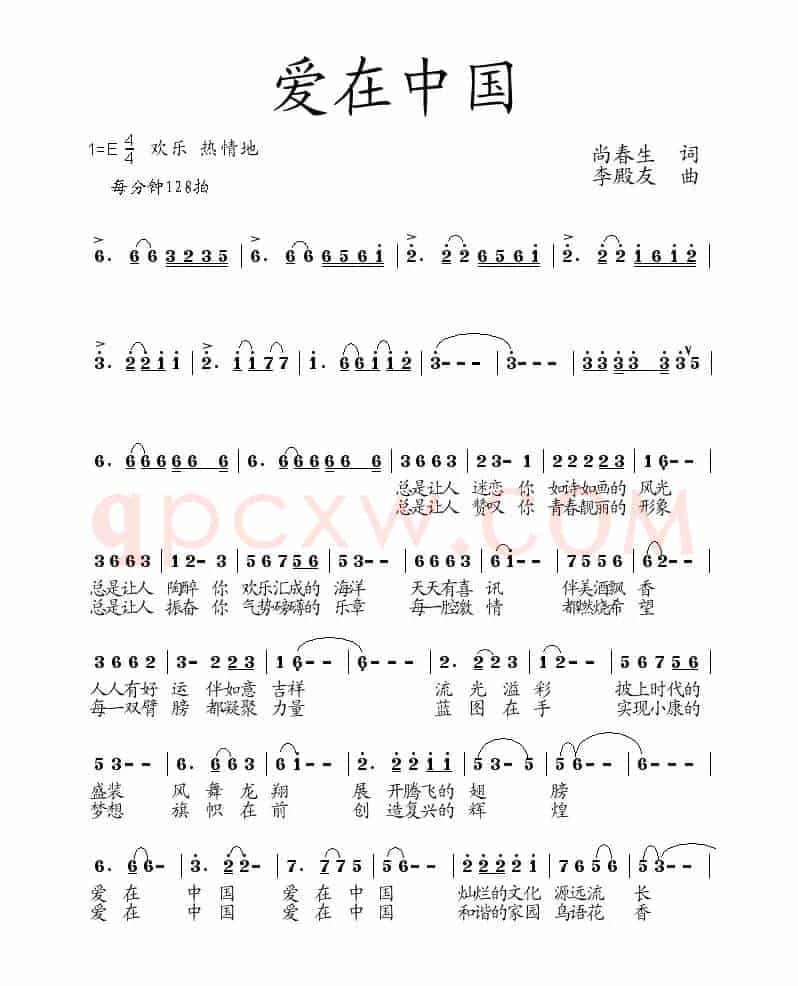 爱在中国
1=E 4/4 欢乐 热情地
尚春生 词
每分钟128拍
李殿友 曲
6. 6 6 3 2 3 5 | 6. 6 6 6 5 6 1 | 2. 2 2 6 5 6 1 | 2. 2 2 1 6 1 2 |
3. 2 2 1 1 | 2. 1 1 7 7 | 1. 6 6 1 1 2 | 3 - - - | 3 - - - | 3 3 3 3 3 3 3 5 |
6. 6 6 6 6 6 6 6 | 6. 6 6 6 6 6 6 6 | 3 6 6 3 | 2 3 - 1 | 2 2 2 2 3 | 1 6 - - |
总是让人 迷恋 你 如诗如画的 风光
总是让人 赞叹 你 青春靓丽的 形象
qpcxw.com
3 6 6 3 | 1 2 - 3 | 5 6 7 5 6 | 5 3 - - | 6 6 6 3 | 6 1 - - | 7 5 5 6 | 6 2 - - |
总是让人 陶醉 你 欢乐汇成的 海洋 天天有喜 讯 伴美酒飘 香
总是让人 振奋 你 气势磅礴的 乐章 每一腔激 情 都燃烧希 望
3 6 6 2 | 3 - 2 2 3 | 1 6 - - | 6 - - - | 2. 2 2 3 | 1 2 - - | 5 6 7 5 6 |
人人有好 运 伴如意 吉祥 流 光 溢 彩 披上时代的
每一双臂 膀 都凝聚 力量 蓝 图 在 手 实现小康的
5 3 - - | 6. 6 6 3 | 6 1 - - | 2. 2 2 1 1 | 5 3 - - | 5 6 - - | 6 - - - |
盛装 风 舞 龙 翔 展 开腾飞的 翅 膀
梦想 旗 帜 在 前 创 造复兴的 辉 煌
6. 6 6 - | 3. 2 2 - | 7. 7 7 5 | 5 6 - - | 2 2 2 2 1 | 7 6 5 6 | 3 - - - |
爱 在 中 国 爱 在 中 国 灿烂的文化 源远流 长
爱 在 中 国 爱 在 中 国 和谐的家园 鸟语花 香